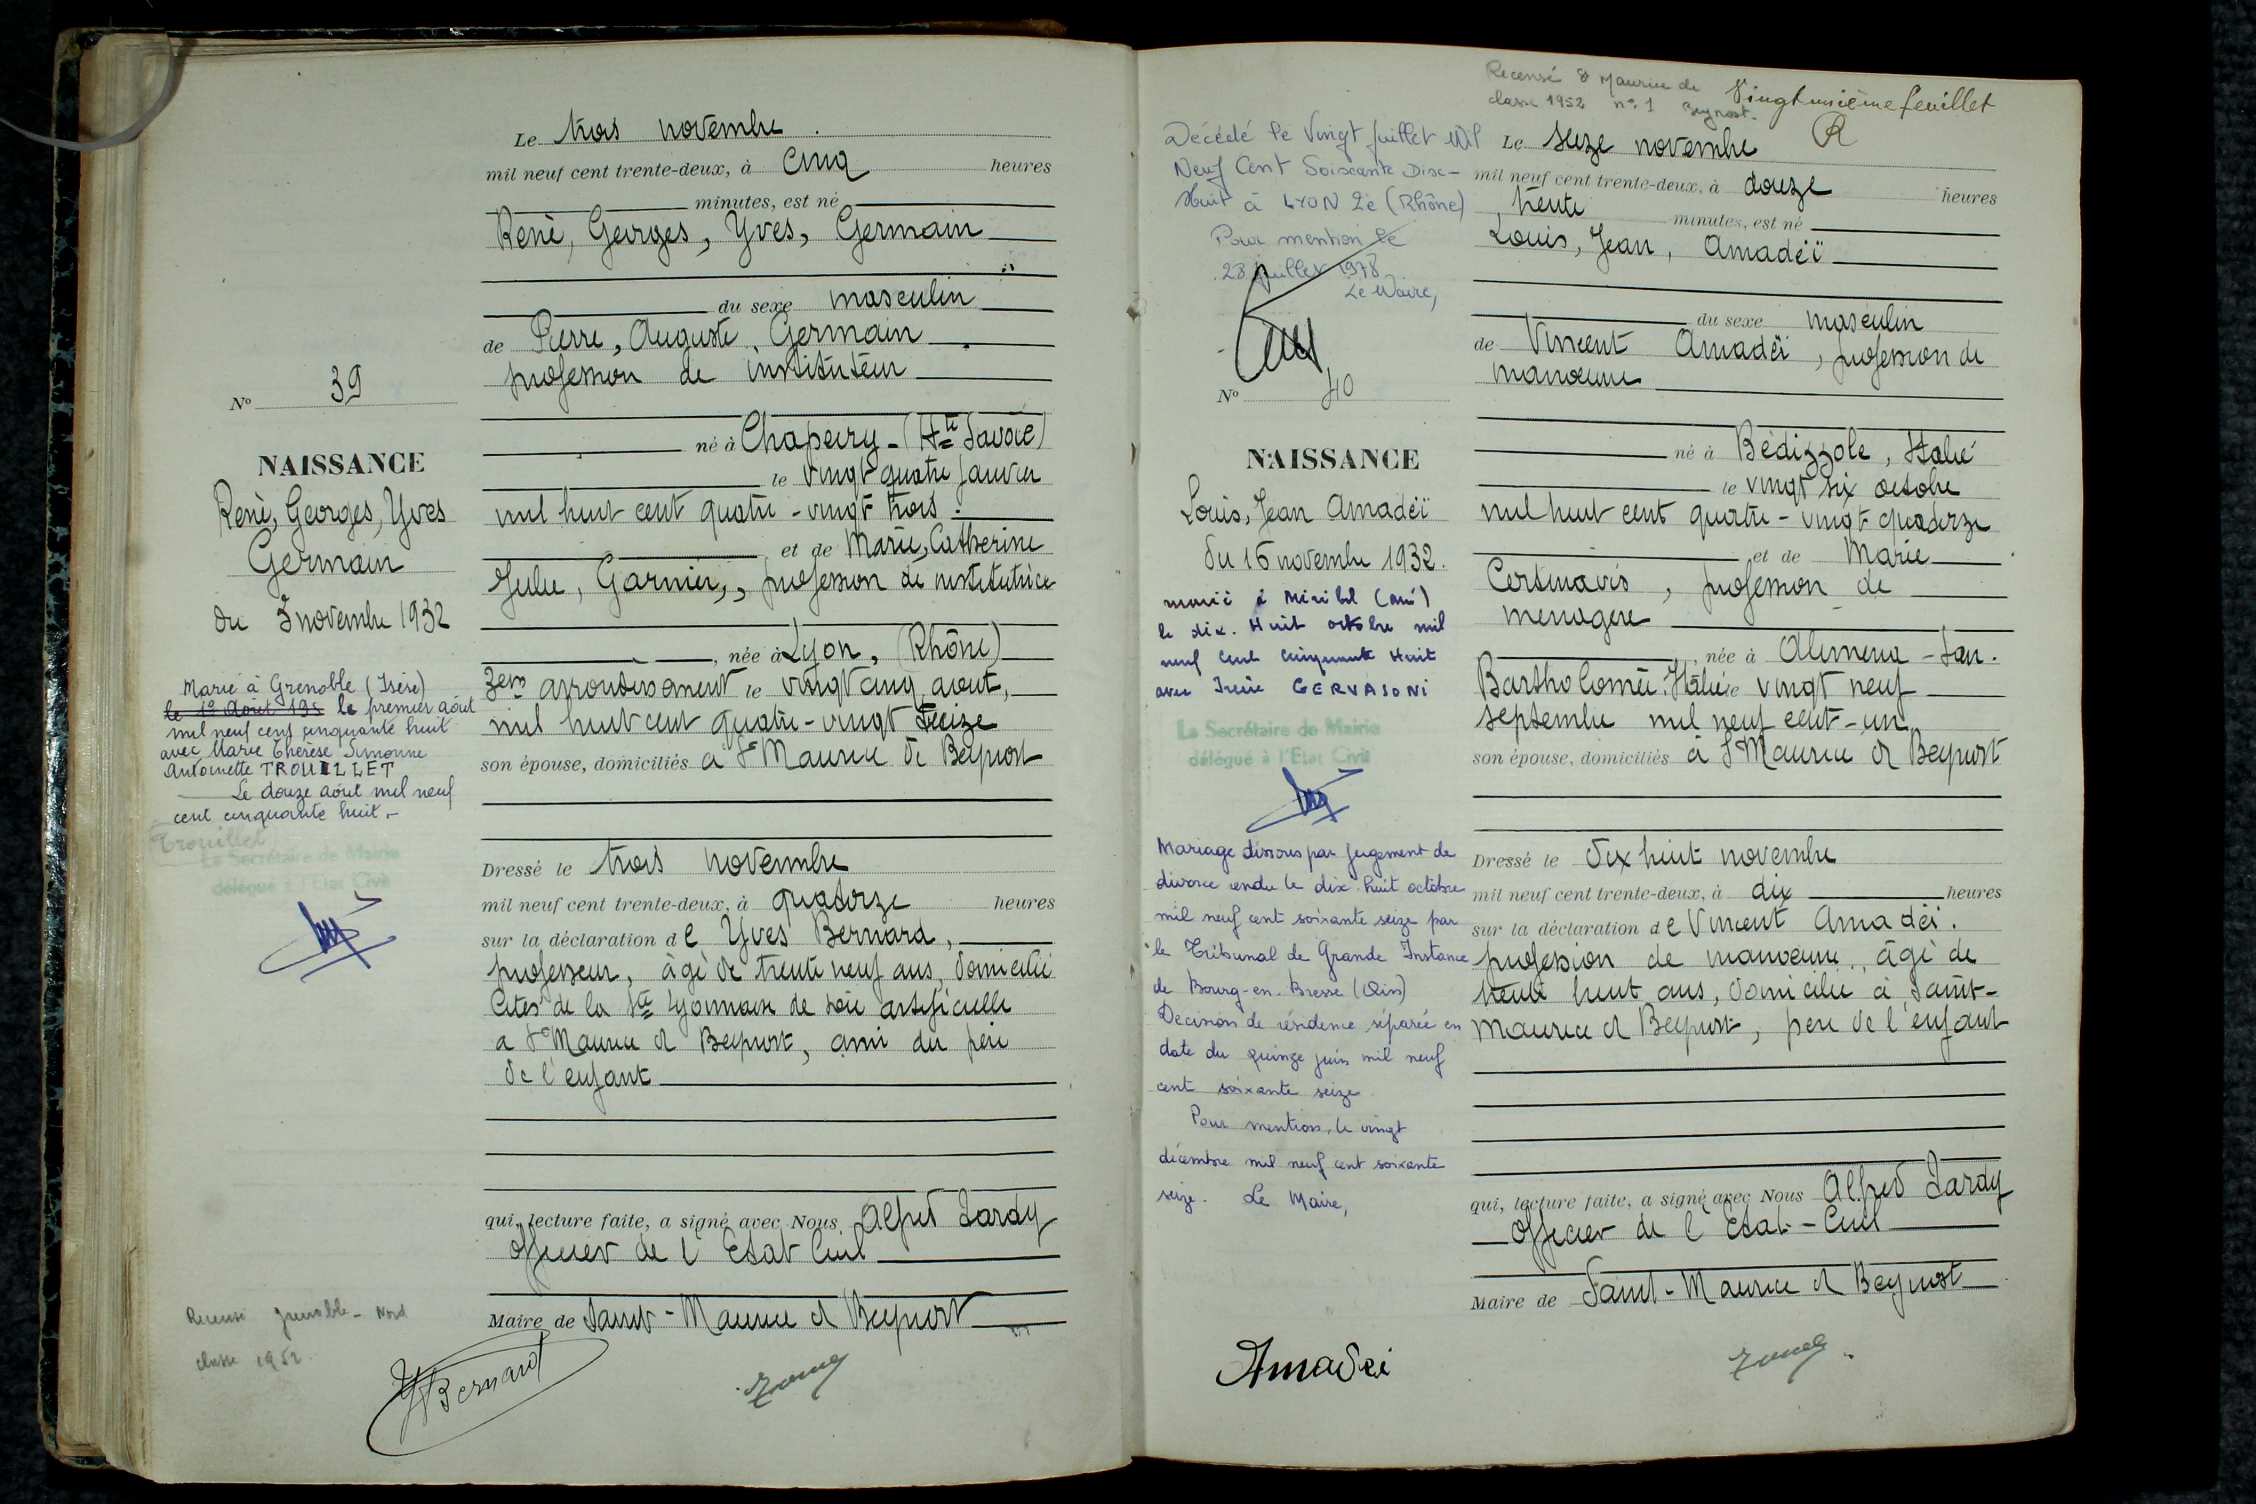 Le trois novembre
mil neuf cent trente-deux, à cinq heures
minutes, est né
René, Georges, Yves, Germain
du sexe masculin
de Pierre, Auguste, Germain
profession de instituteur
né à Chapeiry - (Hte Savoie)
le vingt quatre janvier
mil huit cent quatre-vingt trois.
et de Marie, Catherine
Julie, Garnier, profession de institutrice
, née à Lyon, (Rhône)
3em arrondissement le vingt cinq aout,
mil huit cent quatre-vingt treize
son épouse, domiciliés à St Maurice de Beynost
Dressé le trois novembre
mil neuf cent trente-deux, à quatorze heures
sur la déclaration de Yves Bernard,
professeur, âgé de trente neuf ans, domicilié
Cités de la Sté Lyonnaise de soie artificielle
a St Maurice de Beynost, ami du père
de l'enfant
qui, lecture faite, a signé avec Nous Alfred Tardy
officier de l'Etat Civil
Maire de Saint-Maurice de Beynost
YBernard
No 39
NAISSANCE
René, Georges, Yves
Germain
du 3 novembre 1932
Marié à Grenoble (Isère)
le 1e Août 195 le premier août
mil neuf cent cinquante huit
avec Marie Thérèse Simonne
Antoinette TROUILLET
Le douze août mil neuf
cent cinquante huit.-
Trouillet
Le Secrétaire de Mairie
délégué à l'Etat Civil
Recensé Grenoble - Nord
classe 1952.
Recensé St Maurice de
classe 1952 no 1 Beynost.
Vingt unième feuillet
Le seize novembre
mil neuf cent trente-deux, à douze heures
, trente minutes, est né
Louis, Jean, Amadéï
du sexe masculin
de Vincent Amadéï, profession de
manœuvre
né à Bédizzole, Italie
le vingt six octobre
mil huit cent quatre-vingt quatorze
et de Marie
, profession de
ménagère
, née à - San.
Bartholoméé, Italie le vingt neuf
septembre mil neuf cent-un
son épouse, domiciliés à St Maurice de Beynost
Dressé le dix huit novembre
mil neuf cent trente-deux, à dix heures
sur la déclaration de Vincent Amadéï.
profession de manœuvre, âgé de
trente huit ans, domicilié à Saint-
Maurice de Beynost, père de l'enfant
qui, lecture faite, a signé avec Nous Alfred Tardy
officier de l'Etat-Civil
Maire de Saint-Maurice de Beynost
Amadei
Décédé le Vingt juillet Mil
Neuf Cent Soixante Dix-
Huit à LYON 2e (Rhône)
Pour mention le
28 juillet 1978.
Le Maire,
No 40
NAISSANCE
Louis, Jean Amadéï
du 16 novembre 1932.
marié à Miribel (Ain)
le dix. Huit octobre mil
neuf cent cinquante Huit
avec Irène GERVASONI
Le Secrétaire de Mairie
délégué à l'Etat Civil
Mariage dissous par jugement de
divorce rendu le dix huit octobre
mil neuf cent soixante seize par
le Tribunal de Grande Instance
de Bourg-en-Bresse (Ain)
Décision de résidence séparée en
date du quinze juin mil neuf
cent soixante seize
Pour mention, le vingt
décembre mil neuf cent soixante
seize. Le Maire,